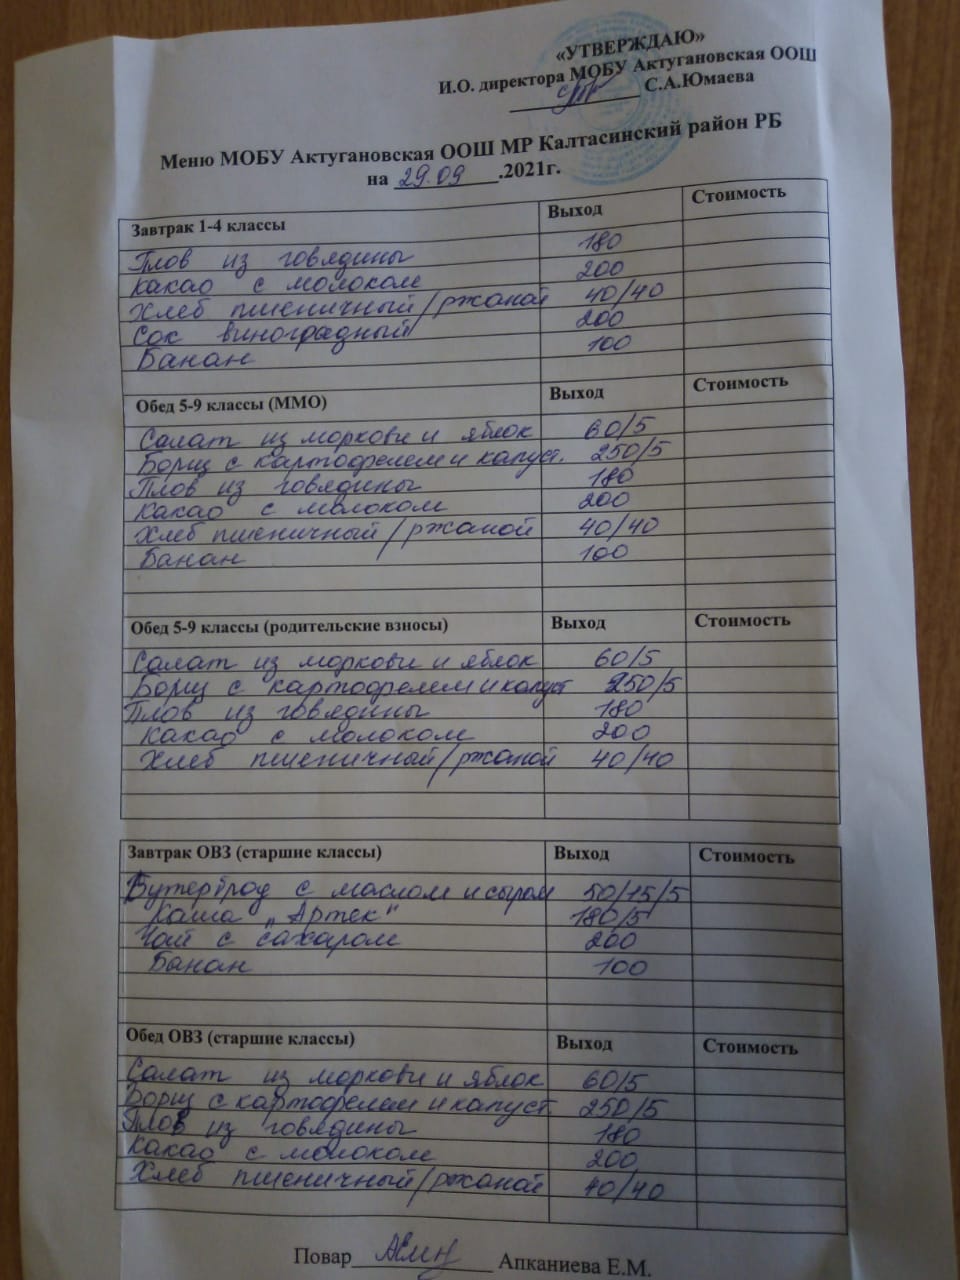 «УТВЕРЖДАЮ»
И.О. директора МОБУ Актугановская ООШ
С.А.Юмаева
Меню МОБУ Актугановская ООШ МР Калтасинский район РБ
на 29.09.2021г.
Завтрак 1-4 классы Выход Стоимость
Плов из говядины 180
Какао с молоком 200
Хлеб пшеничный/ржаной 40/40
Сок виноградный 200
Банан 100
Обед 5-9 классы (ММО) Выход Стоимость
Салат из моркови и яблок 60/5
Борщ с картофелем и капуст. 250/5
Плов из говядины 180
Какао с молоком 200
Хлеб пшеничный/ржаной 40/40
Банан 100
Обед 5-9 классы (родительские взносы) Выход Стоимость
Салат из моркови и яблок 60/5
Борщ с картофелем и капуст 250/5
Плов из говядины 180
Какао с молоком 200
Хлеб пшеничный/ржаной 40/40
Завтрак ОВЗ (старшие классы) Выход Стоимость
Бутерброд с маслом и сыром 50/15/5
Каша „Артек" 180/5
Чай с сахаром 200
Банан 100
Обед ОВЗ (старшие классы) Выход Стоимость
Салат из моркови и яблок 60/5
Борщ с картофелем и капуст 250/5
Плов из говядины 180
Какао с молоком 200
Хлеб пшеничный/ржаной 40/40
Повар Апканиева Е.М.